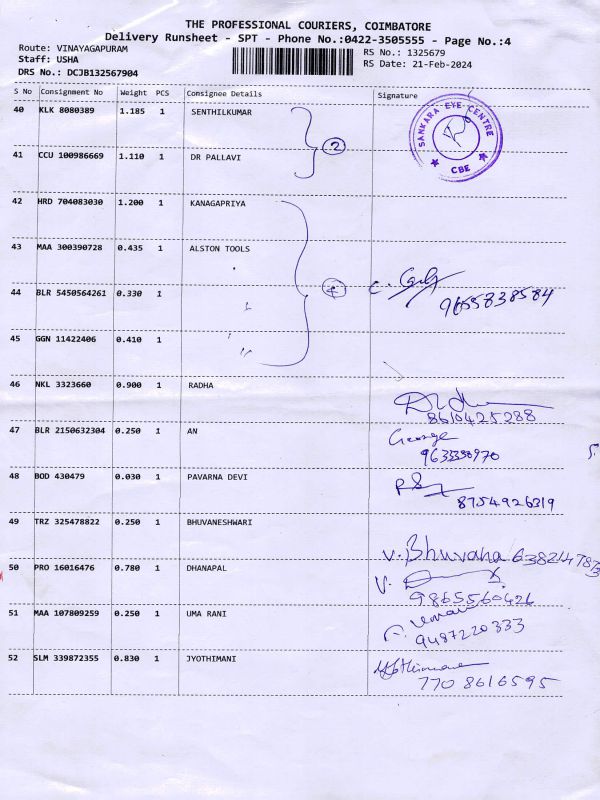 THE PROFESSIONAL COURIERS, COIMBATORE
Delivery Runsheet - SPT - Phone No.:0422-3505555 - Page No.:4
Route: VINAYAGAPURAM
RS No.: 1325679
Staff: USHA
RS Date: 21-Feb-2024
DRS No.: DCJB132567904
S No Consignment No Weight PCS Consignee Details Signature
40 KLK 8080389 1.185 1 SENTHILKUMAR
SANKARA EYE CENTRE
CBE
2
41 CCU 100986669 1.110 1 DR PALLAVI
42 HRD 704083030 1.200 1 KANAGAPRIYA
43 MAA 300390728 0.435 1 ALSTON TOOLS
44 BLR 5450564261 0.330 1
4
9655838584
45 GGN 11422406 0.410 1
46 NKL 3323660 0.900 1 RADHA
8610425288
47 BLR 2150632304 0.250 1 AN George
48 BOD 430479 0.030 1 PAVARNA DEVI
8754926319
49 TRZ 325478822 0.250 1 BHUVANESHWARI
V. Bhuvana
50 PRO 16016476 0.780 1 DHANAPAL V.
9865560426
51 MAA 107809259 0.250 1 UMA RANI
9487220333
52 SLM 339872355 0.830 1 JYOTHIMANI
770 8616595